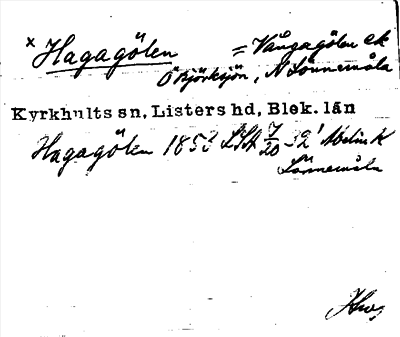 x Hagagölen = Vångagölen ek
Ö Björksjön, N Lönnemåla
Kyrkhults sn, Listers hd, Blek. län
Hagagölen 1853 LSA 7/20 32'
Lönnemåla